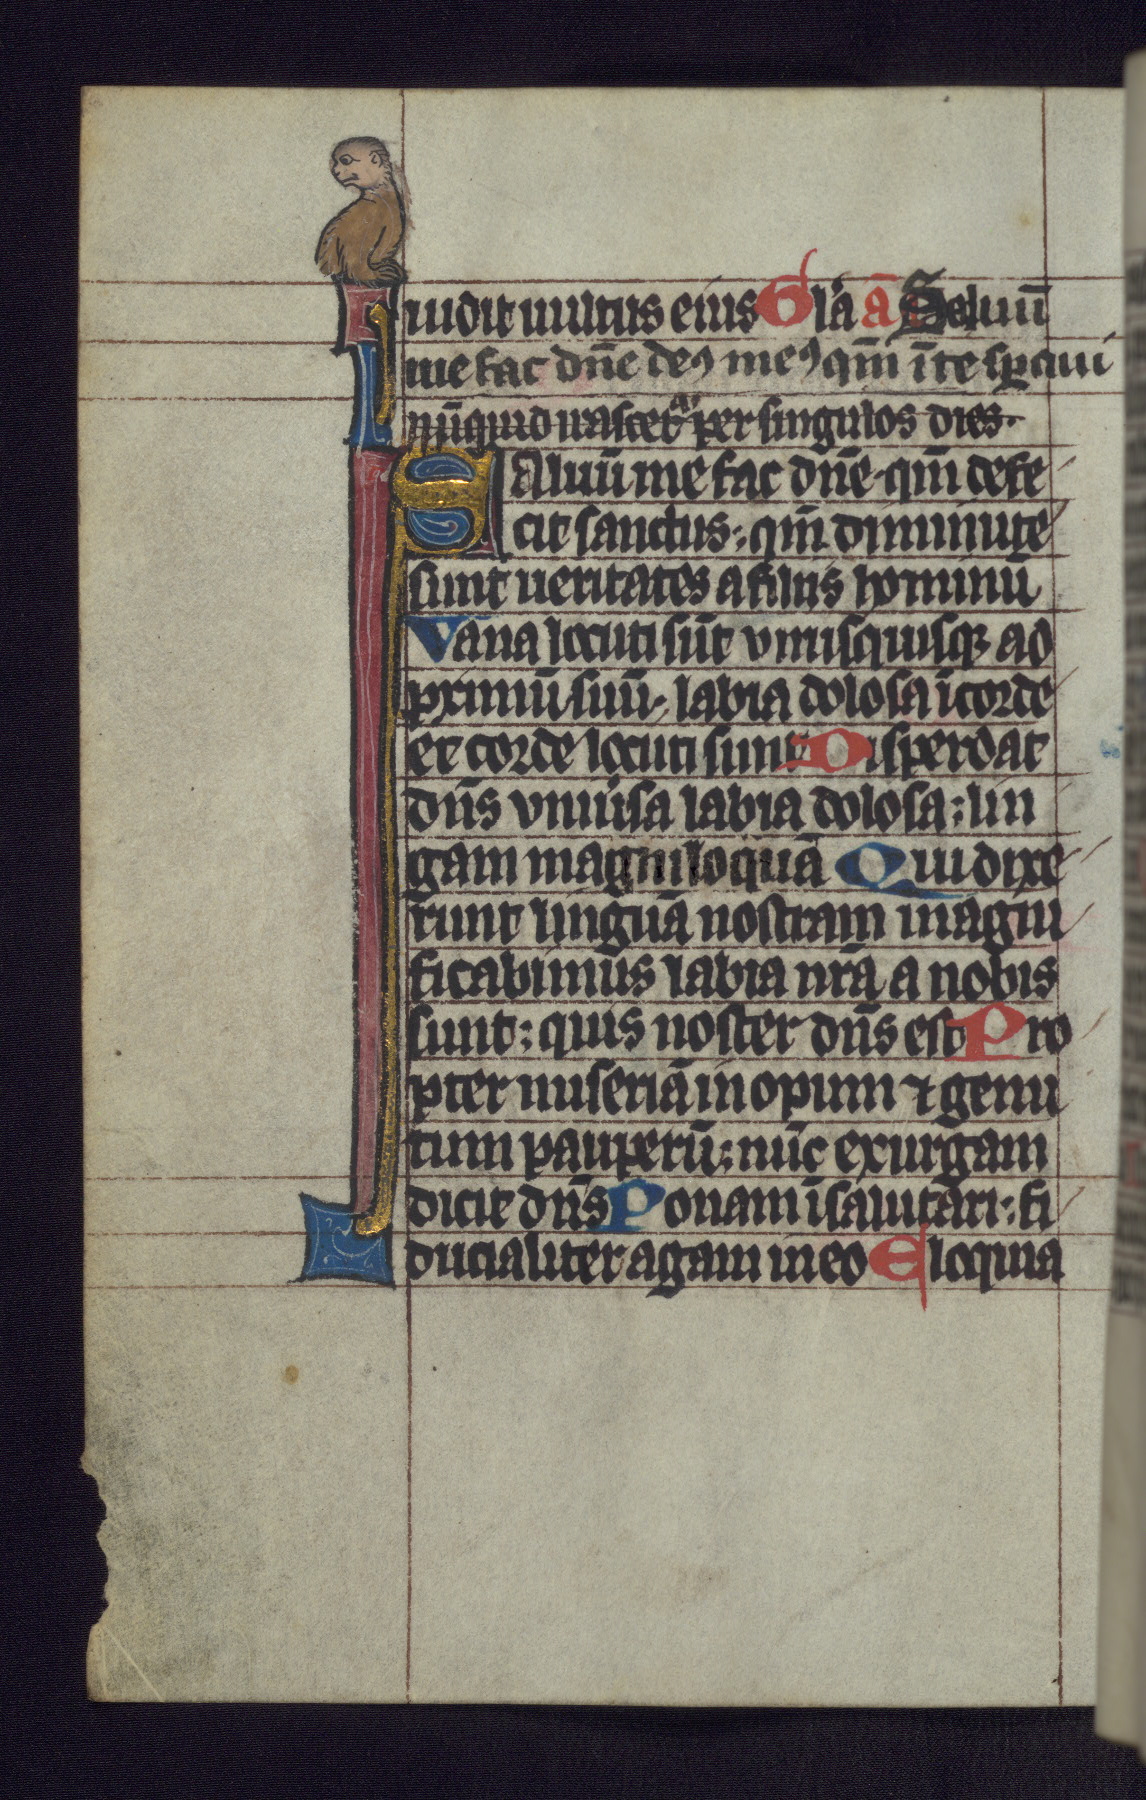 uidit uultus eius Gl̄a ā Saluū
me fac dn̄e deꝯ meꝯ qm̄ īte sꝑaui
nūquid irascet᷑ per singulos dies.
Saluū me fac dn̄e. qm̄ defe
cit sanctus; qm̄ diminute
sunt ueritates a filiis hominū
Vana locuti sūt vnusquisqꝫ ad
ꝓximū suū, labia dolosa ī corde
et corde locuti sunt Disperdat
dn̄s vniu̇sa labia dolosa; lin
gam magniloquā Qui dixe
runt linguā nostram magni
ficabimus labia nr̄a a nobis
sunt; quis noster dn̄s est Pro
pter miseriā inopum ⁊ gemi
tum pauperū; nūc exurgam
dicit dn̄s Ponam ī salutari; fi
ducialiter agam in eo Eloquia